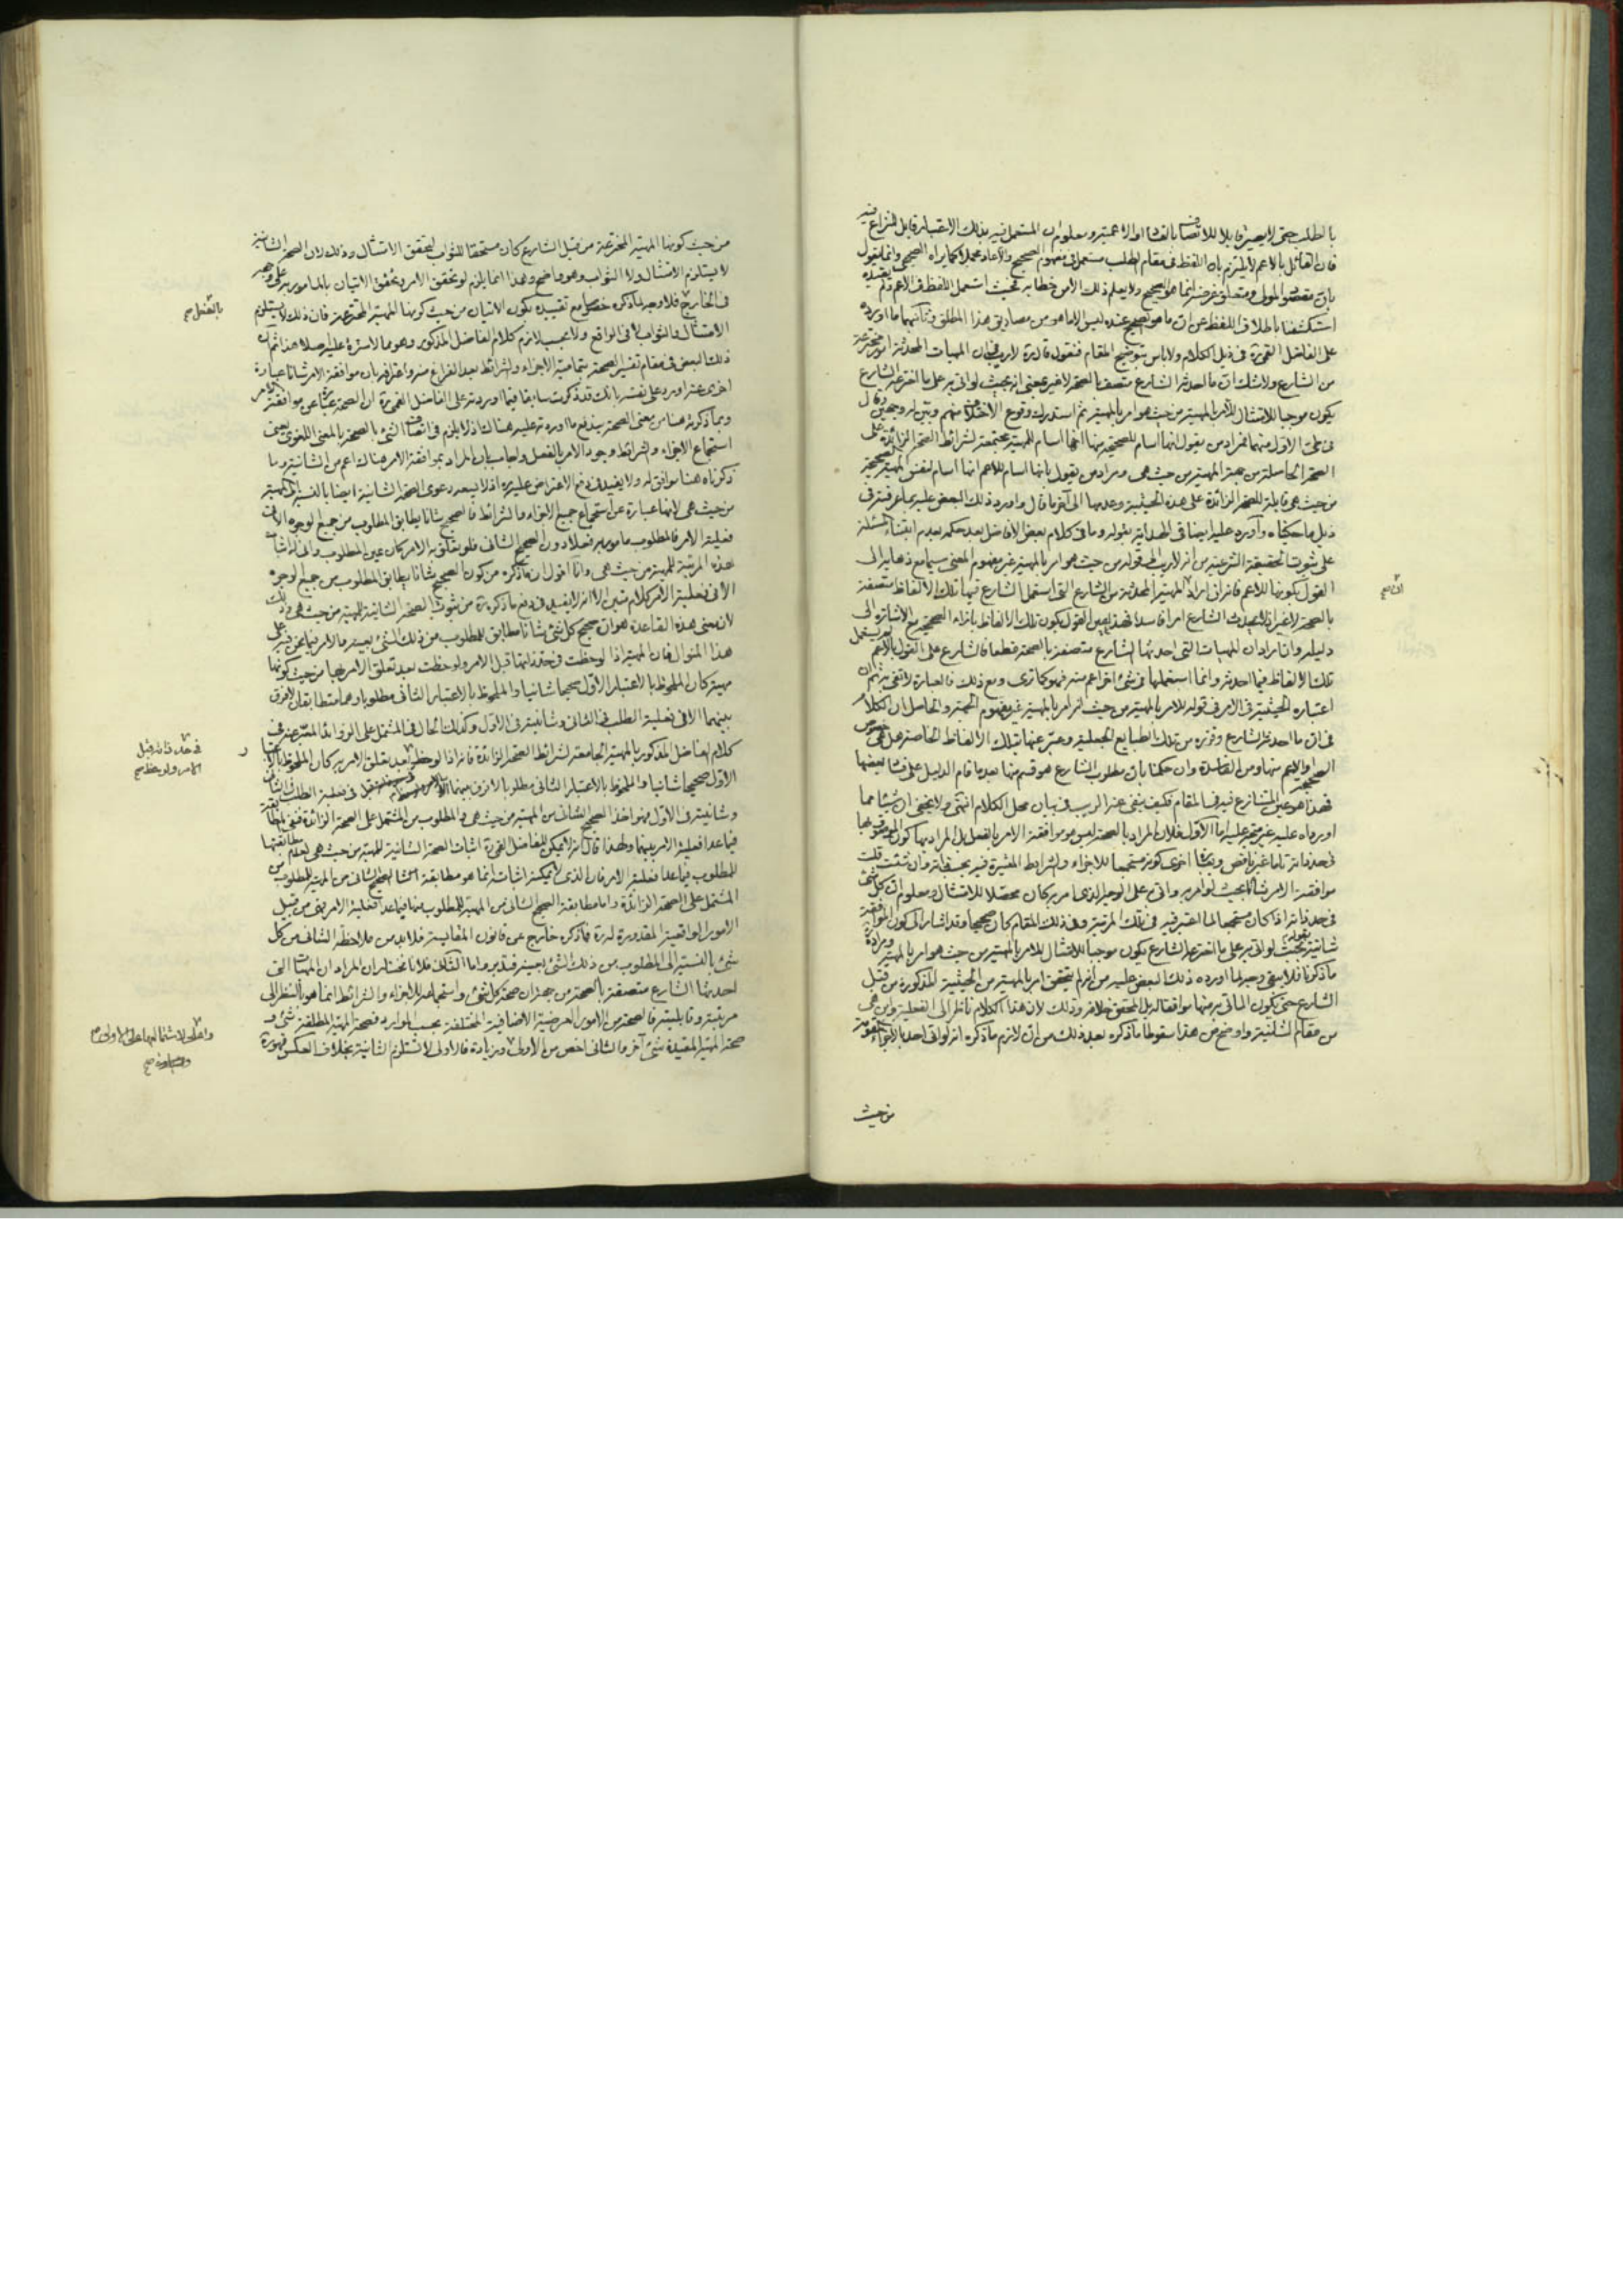 بالطلب حتى لا يصير قابلا للاتصاف بالفساد او الاعمية ومعلوم ان المستعمل فيه بذلك الاعتبار قابل للنزاع فيه
فان القائل بالاعم لا يلتزم بان اللفظ في مقام الطلب مستعمل في مفهوم الصحيح والاعادة مجملا كما يراه الصحيحي وانما يقول
بان مقصود المولى ومتعلق غرضه انما هو الصحيح ولا يعلم ذلك الا من خطابه بحيث استعمل اللفظ في الاعم ولم يقيده
استكشفنا باطلاق اللفظ عن ان ما هو الصحيح عنده ليس الا ما هو من مصاديق هذا المطلق وثانيهما ما اورده
على الفاضل القمي ره في ذيل الكلام ولا باس بتوضيح المقام فنقول قال ره لا ريب في ان المهيات المحدثة امور مخترعة
من الشارع ولا شك ان ما احدثه الشارع متصف بالصحة لا غير بمعنى انه بحيث لو اتى به على ما اخترعه الشارع
يكون موجبا للامتثال للامر بالمهية من حيث هو امر بالمهية ثم استدرك وقوع الاختلاف منهم وبين له وجهين وقال
في طى الاول منهما فمراد من يقول انها اسام للصحيحة منها انها اسام للمهية مجتمعة لشرائط الصحة الزائدة على
الصحة الحاصلة من جهة المهية من حيث هي ومراد من يقول بانها اسام للاعم انها اسام لنفس المهية الصحيحة
من حيث هي قابلة للصحة الزائدة على هذه الحيثية وعدمها الى آخر ما قال واورد ذلك البعض عليه بما عرفته في
ذيل ما حكيناه وآورد عليه ايضا في الهداية بقوله وما في كلام بعض الافاضل بعد حكمه بعدم ابتناء المسئلة
على ثبوت الحقيقة الشرعية من انه لا ريب الخ قوله من حيث هو امر بالمهية غير مفهوم المعنى سيما مع ذهابه الى
القول بكونها للاعم فانه ان اراد ان المهية المحدثة من الشارع التي استعمل الشارع فيها تلك الالفاظ متصفة
بالصحة لا غير اذ لا يحدث الشارع امرا فاسدا فهذا بعينه القول بكون تلك الالفاظ بازاء الصحيحة مع الاشارة الى
دليله وان اراد ان المهيات التي احدثها الشارع متصفة بالصحة قطعا فالشارع على القول بالاعم لم يستعمل
تلك الالفاظ فيما احدثه وانما استعملها في شئ اخر اعم منه فهو كما ترى ومع ذلك فالعبارة لا تفى به ثم ان
اعتباره الحيثية في الامر في قوله للامر بالمهية من حيث انه امر بالمهية غير مفهوم الجهة والحاصل ان الكلام
في ان ما احدثه الشارع وقرره من تلك الطبايع الجعلية وعبر عنها بتلك الالفاظ الخاصة هل هي خصوص
الصحيحة او الاعم منها ومن الفاسدة وان حكمنا بان مطلوب الشارع هو قسم منها بعد ما قام الدليل على فساد بعضها
فهذا هو عين المتنازع فيه في المقام فكيف ينفى عنه الريب في بيان محل الكلام انتهى ولا يخفى ان شيئا مما
اورداه عليه غير متجه عليه اما الاول فلان المراد بالصحة ليس هو موافقة الامر بالفعل بل المراد بها كون الموصوف بها
في حد ذاته تاما غير ناقص وبعبارة اخرى كونه مستجمعا للاجزاء والشرائط المعتبرة فيه بحسب ذاته وان شئت قلت
موافقة الامر شانا بحيث لو امر به واتى على الوجه الذي امر به كان محصلا للامتثال ومعلوم ان كل شئ
في حد ذاته اذا كان مستجمعا لما اعتبر فيه في تلك المرتبة وفى ذلك المقام كان صحيحا وقد اشار الى كون الموافقة
شانية بقوله بحيث لو اتى به على ما اخترعه الشارع يكون موجبا للامتثال للامر بالمهية من حيث هو امر بالمهية ومراده
ما ذكرنا فلا يبقى وجه لما اورده ذلك البعض عليه من انه لم يتحقق امر بالمهية من الحيثية المذكورة من قبل
الشارع حتى يكون الماتى به منها موافقا له بل المحقق خلافه وذلك لان هذا الكلام ناظر الى الفعلية واين هي
من مقام الشانية واوضح من هذا سقوطا ما ذكره بعد ذلك من ان لازم ما ذكره انه لو اتى احد بالاجزاء المقومة
من حيث
ان صح
من حيث كونها المهية المخترعة من قبل الشارع كان مستحقا للثواب لتحقق الامتثال وذلك لان الصحة الشانية
لا يستلزم الامتثال ولا الثواب وهو واضح وهذا انما يلزم لو تحقق الامر وتحقق الاتيان بالمامور به على وجهه
في الخارج فلا وجه لما ذكره خصوصا مع تقييده بكون الاتيان من حيث كونها المهية المخترعة فان ذلك لا يستلزم
الامتثال والثواب لا في الواقع ولا بحسب لازم كلام الفاضل المذكور وهو مما لا سترة عليه اصلا هذا ثم ان
ذلك البعض في مقام تفسير الصحة بتمامية الاجزاء والشرائط بعد الفراغ منه واعترافه بان موافقة الامر شانا عبارة
اخرى عنه اورد على نفسه بانك قد ذكرت سابقا فيما اوردته على الفاضل القمي ره ان الصحة عبارة عن موافقة الامر
وبما ذكرته هنا من معنى الصحة يندفع ما اوردته عليه هناك اذ لا يلزم في اتصاف الشئ بالصحة بالمعنى اللغوي بمعنى
استجماع الاجزاء والشرائط وجود الامر بالفعل واجاب بان المراد بموافقة الامر هناك اعم من الشانية وما
ذكرناه هنا موافق له ولا يفيد في دفع الاعتراض عليه ره اذ لا يبعد دعوى الصحة الشانية ايضا بالنسبة الى المهية
من حيث هي لانها عبارة عن استجماع جميع الاجزاء والشرائط فالصحيح شانا يطابق المطلوب من جميع الوجوه الا في
فعلية الامر فالمطلوب مامور به فعلا دون الصحيح الشانى فلو تعلق به الامر كان عين المطلوب وانى له اثبات
هذه المرتبة للمهية من حيث هي وانا اقول ان ما ذكره من كون الصحيح شانا يطابق المطلوب من جميع الوجوه
الا في فعلية الامر كلام متين الا انه لا يفيد في دفع ما ذكره ره من ثبوت الصحة الشانية للمهية من حيث هي وذلك
لان معنى هذه القاعدة هو ان صحيح كل شئ شانا مطابق للمطلوب من ذلك الشئ بعينه والامر فيما نحن فيه على
هذا المنوال فان المهية اذا لوحظت في حد ذاتها قبل الامر ولوحظت بعد تعلق الامر بها من حيث كونها
مهية كان الملحوظ بالاعتبار الاول صحيحا شانيا والملحوظ بالاعتبار الثانى مطلوبا وهما متطابقان لا فرق
بينهما الا في فعلية الطلب في الثانى وشانيته في الاول وكذلك الحال في المشتمل على الزوائد المعبر عنه في
كلام الفاضل المذكور بالمهية الجامعة لشرائط الصحة الزائدة فانه اذا لوحظ بعد تعلق الامر به كان الملحوظ بالاعتبار
الاول صحيحا شانيا والملحوظ بالاعتبار الثانى مطلوبا لا فرق بينهما الا في فعلية الطلب في الثانى
وشانيته في الاول فهو اخذ الصحيح الشانى من المهية من حيث هي والمطلوب من المشتمل على الصحة الزائدة فنفى المطابقة
فيما عدا فعلية الامر بينهما ولهذا قال انه لا يمكن للفاضل القمي ره اثبات الصحة الشانية للمهية من حيث هي لعدم مطابقتها
للمطلوب فيما عدا فعلية الامر فان الذي لا يمكنه اثباته انما هو مطابقة الصحيح الشانى من المهية للمطلوب من
المشتمل على الصحة الزائدة واما مطابقة الصحيح الشانى من المهية للمطلوب منها فيما عدا فعلية الامر فهى من قبيل
الامور الواقعية المقدورة له ره فما ذكره خارج عن قانون المقايسة فلا بد من ملاحظة الشانى من كل
شئ بالنسبة الى المطلوب من ذلك الشئ بعينه فتدبر واما الثانى فلانا نختار ان المراد ان المهيات التي
احدثها الشارع متصفة بالصحة من جهة ان صحة كل شئ واستجماعه للاجزاء والشرائط انما هو بالنظر الى
مرتبته وقابليته فالصحة من الامور العرضية الاضافية المختلفة بحسب الموارد فصحة المهية المطلقة شئ و
صحة المهية المقيدة شئ آخر والثانى اخص من الاولى وزيادة فالاولى لا تستلزم الثانية بخلاف العكس ضرورة
بالفعل صح
في حد ذاته قبل
الامر ولوحظ صح